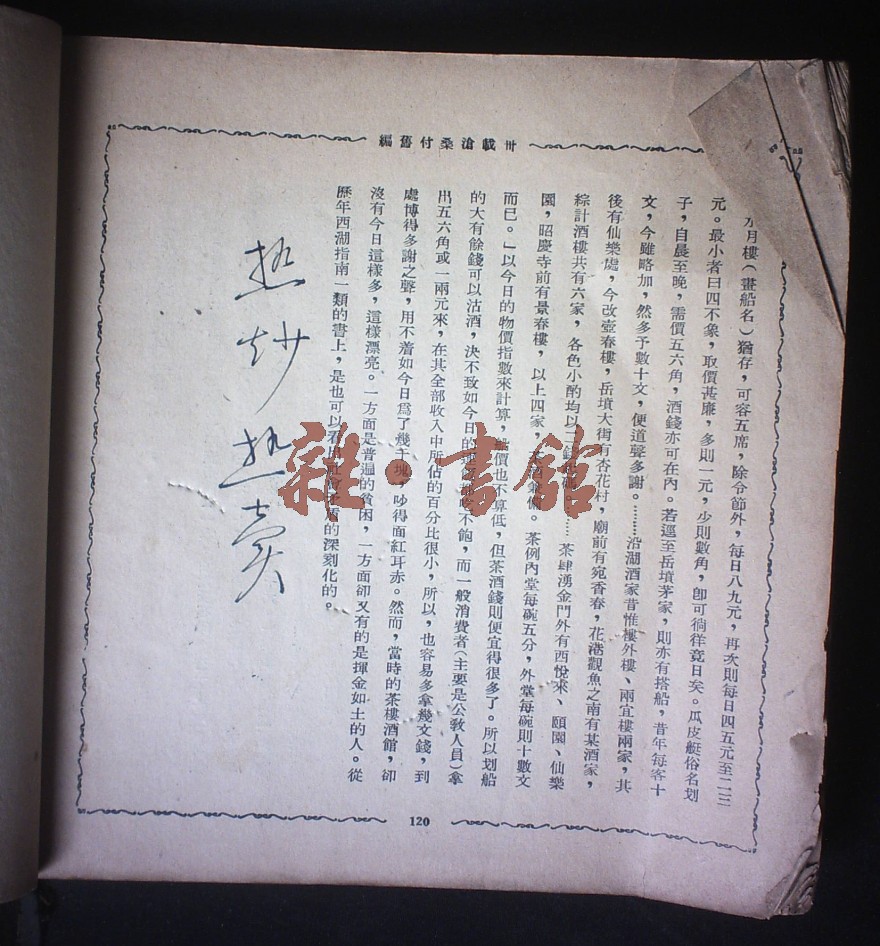 卅載滄桑付舊編
水月樓（畫船名）猶存，可容五席，除令節外，每日八九元，再次則每日四五元至二三
元。最小者曰四不象，取價甚廉，多則一元，少則數角，卽可徜徉竟日矣。瓜皮艇俗名划
子，自晨至晚，需價五六角，酒錢亦可在內。若逕至岳墳茅家，則亦有搭船，昔年每客十
文，今雖略加，然多予數十文，便道聲多謝。……沿湖酒家昔惟樓外樓、兩宜樓兩家，其
後有仙樂處，今改壺春樓，岳墳大街有杏花村，廟前有宛香春，花港觀魚之南有某酒家，
綜計酒樓共有六家，各色小酌均以二錢起碼……茶肆湧金門外有西悅來、頤園、仙樂
園，昭慶寺前有景春樓，以上四家，茶酒兼備。茶例內堂每碗五分，外堂每碗則十數文
而已。」以今日的物價指數來計算，船價也不算低，但茶酒錢則便宜得很多了。所以划船
的大有餘錢可以沽酒，決不致如今日的連飯都吃不飽，而一般消費者（主要是公敎人員）拿
出五六角或一兩元來，在其全部收入中所佔的百分比很小，所以，也容易多拿幾文錢，到
處博得多謝之聲，用不着如今日爲了幾千塊，吵得面紅耳赤。然而，當時的茶樓酒館，卻
沒有今日這樣多，這樣漂亮。一方面是普遍的貧困，一方面卻又有的是揮金如土的人。從
歷年西湖指南一類的書上，是也可以看出社會矛盾的深刻化的。
热炒热卖
120
雜·書館